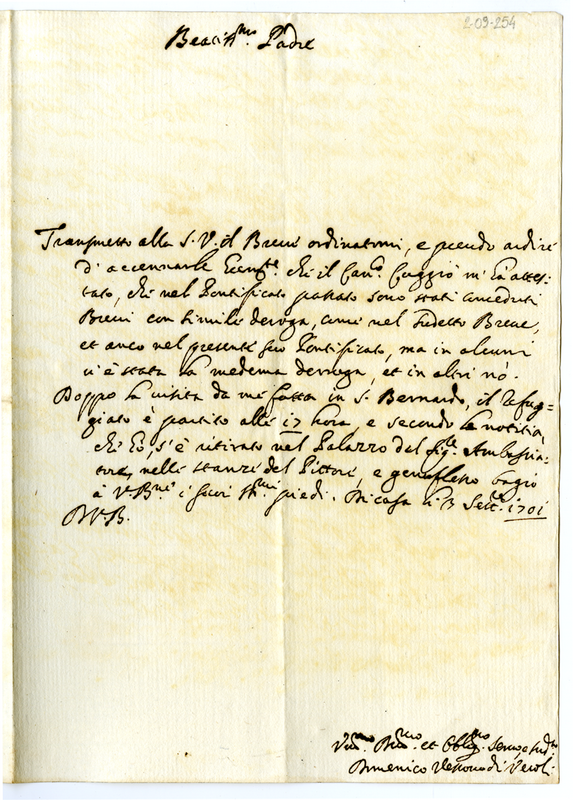 2-09-254
Beatiss.mo Padre
Transmetto alla S. V. il Breve ordinatomi, e prendo ardire
d'accennarle che il Can.co m'hà attes-
tato, che nel Pontificato passato sono stati conceduti
Brevi con simile deroga, come nel sudetto Breve,
et anco nel presente suo Pontificato, ma in alcuni
v'è stata la medema deroga, et in altri nò.
Doppo la visita da me fatta in S. Bernardo, il Refug=
giato è partito alle 17 hora, e secondo la notitia,
che hò, s'è ritirato nel Palazzo del Sig.re Ambascia-
tore, nelle stanze del Pittore, e genuflesso bagio
à V. B.ne i suoi SS.mi piedi. Di casa li 3 Sett.e 1701
D V. B.
Um.mo et Oblig.mo Servo
Domenico Vescovo di Veroli